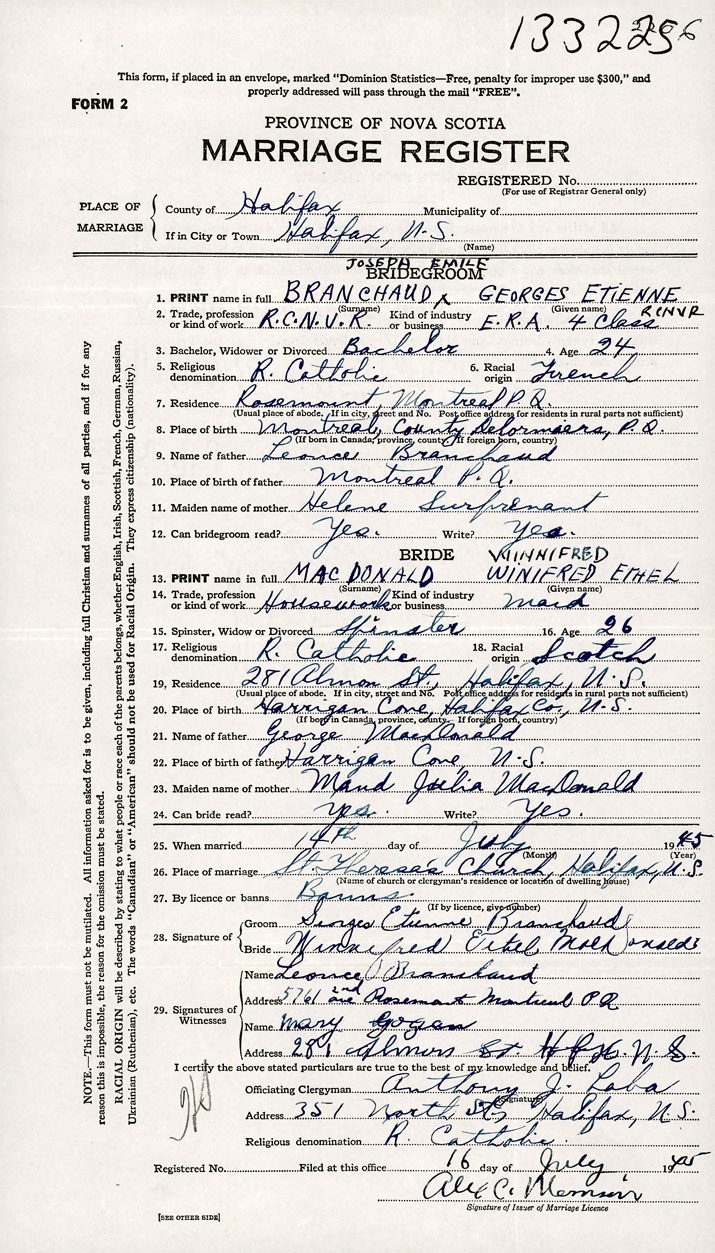 133225
This form, if placed in an envelope, marked "Dominion Statistics—Free, penalty for improper use $300," and
properly addressed will pass through the mail "FREE".
FORM 2
PROVINCE OF NOVA SCOTIA
MARRIAGE REGISTER
REGISTERED No.
(For use of Registrar General only)
PLACE OF MARRIAGE
County of Halifax Municipality of
If in City or Town Halifax, N.S.
(Name)
JOSEPH EMILE
BRIDEGROOM
1. PRINT name in full BRANCHAUD GEORGES ETIENNE
(Surname) (Given name) RCNVR
2. Trade, profession or kind of work R.C.N.V.R. Kind of industry or business E.R.A. 4 Class
3. Bachelor, Widower or Divorced Bachelor 4. Age 24
5. Religious denomination R. Catholic 6. Racial origin French
7. Residence Rosemount, Montreal P.Q.
(Usual place of abode. If in city, street and No. Post office address for residents in rural parts not sufficient)
8. Place of birth Montreal, County Delormiers, P.Q.
(If born in Canada, province, county. If foreign born, country)
9. Name of father Leonce Branchaud
10. Place of birth of father Montreal P.Q.
11. Maiden name of mother Helene Surprenant
12. Can bridegroom read? Yes. Write? Yes.
BRIDE WINNIFRED
13. PRINT name in full MACDONALD WINIFRED ETHEL
(Surname) (Given name)
14. Trade, profession or kind of work Housework Kind of industry or business Maid
15. Spinster, Widow or Divorced Spinster 16. Age 26
17. Religious denomination R. Catholic 18. Racial origin Scotch
19. Residence 281 Almon St., Halifax, N.S.
(Usual place of abode. If in city, street and No. Post office address for residents in rural parts not sufficient)
20. Place of birth Harrigan Cove, Halifax Co., N.S.
(If born in Canada, province, county. If foreign born, country)
21. Name of father George MacDonald
22. Place of birth of father Harrigan Cove, N.S.
23. Maiden name of mother Maud Julia MacDonald
24. Can bride read? yes. Write? Yes.
25. When married 14th day of July 1945
(Month) (Year)
26. Place of marriage St. Theresa's Church, Halifax, N.S.
(Name of church or clergyman's residence or location of dwelling house)
27. By licence or banns Banns.
(If by licence, give number)
28. Signature of
Groom Georges Etienne Branchaud
Bride Winnifred Ethel MacDonald
29. Signatures of Witnesses
Name Leonce Branchaud
Address 5761 2nd ave Rosemont Montreal PQ
Name Mary Gogan
Address 281 Almon St Hfx. N.S.
I certify the above stated particulars are true to the best of my knowledge and belief.
Officiating Clergyman Anthony J. Laba
(Signature)
Address 351 North St., Halifax, N.S.
Religious denomination R. Catholic.
Registered No. Filed at this office 16 day of July 1945
Alex C.
Signature of Issuer of Marriage Licence
[SEE OTHER SIDE]
NOTE.—This form must not be mutilated. All information asked for is to be given, including full Christian and surnames of all parties, and if for any
reason this is impossible, the reason for the omission must be stated.
RACIAL ORIGIN will be described by stating to what people or race each of the parents belongs, whether English, Irish, Scottish, French, German, Russian,
Ukrainian (Ruthenian), etc. The words "Canadian" or "American" should not be used for Racial Origin. They express citizenship (nationality).